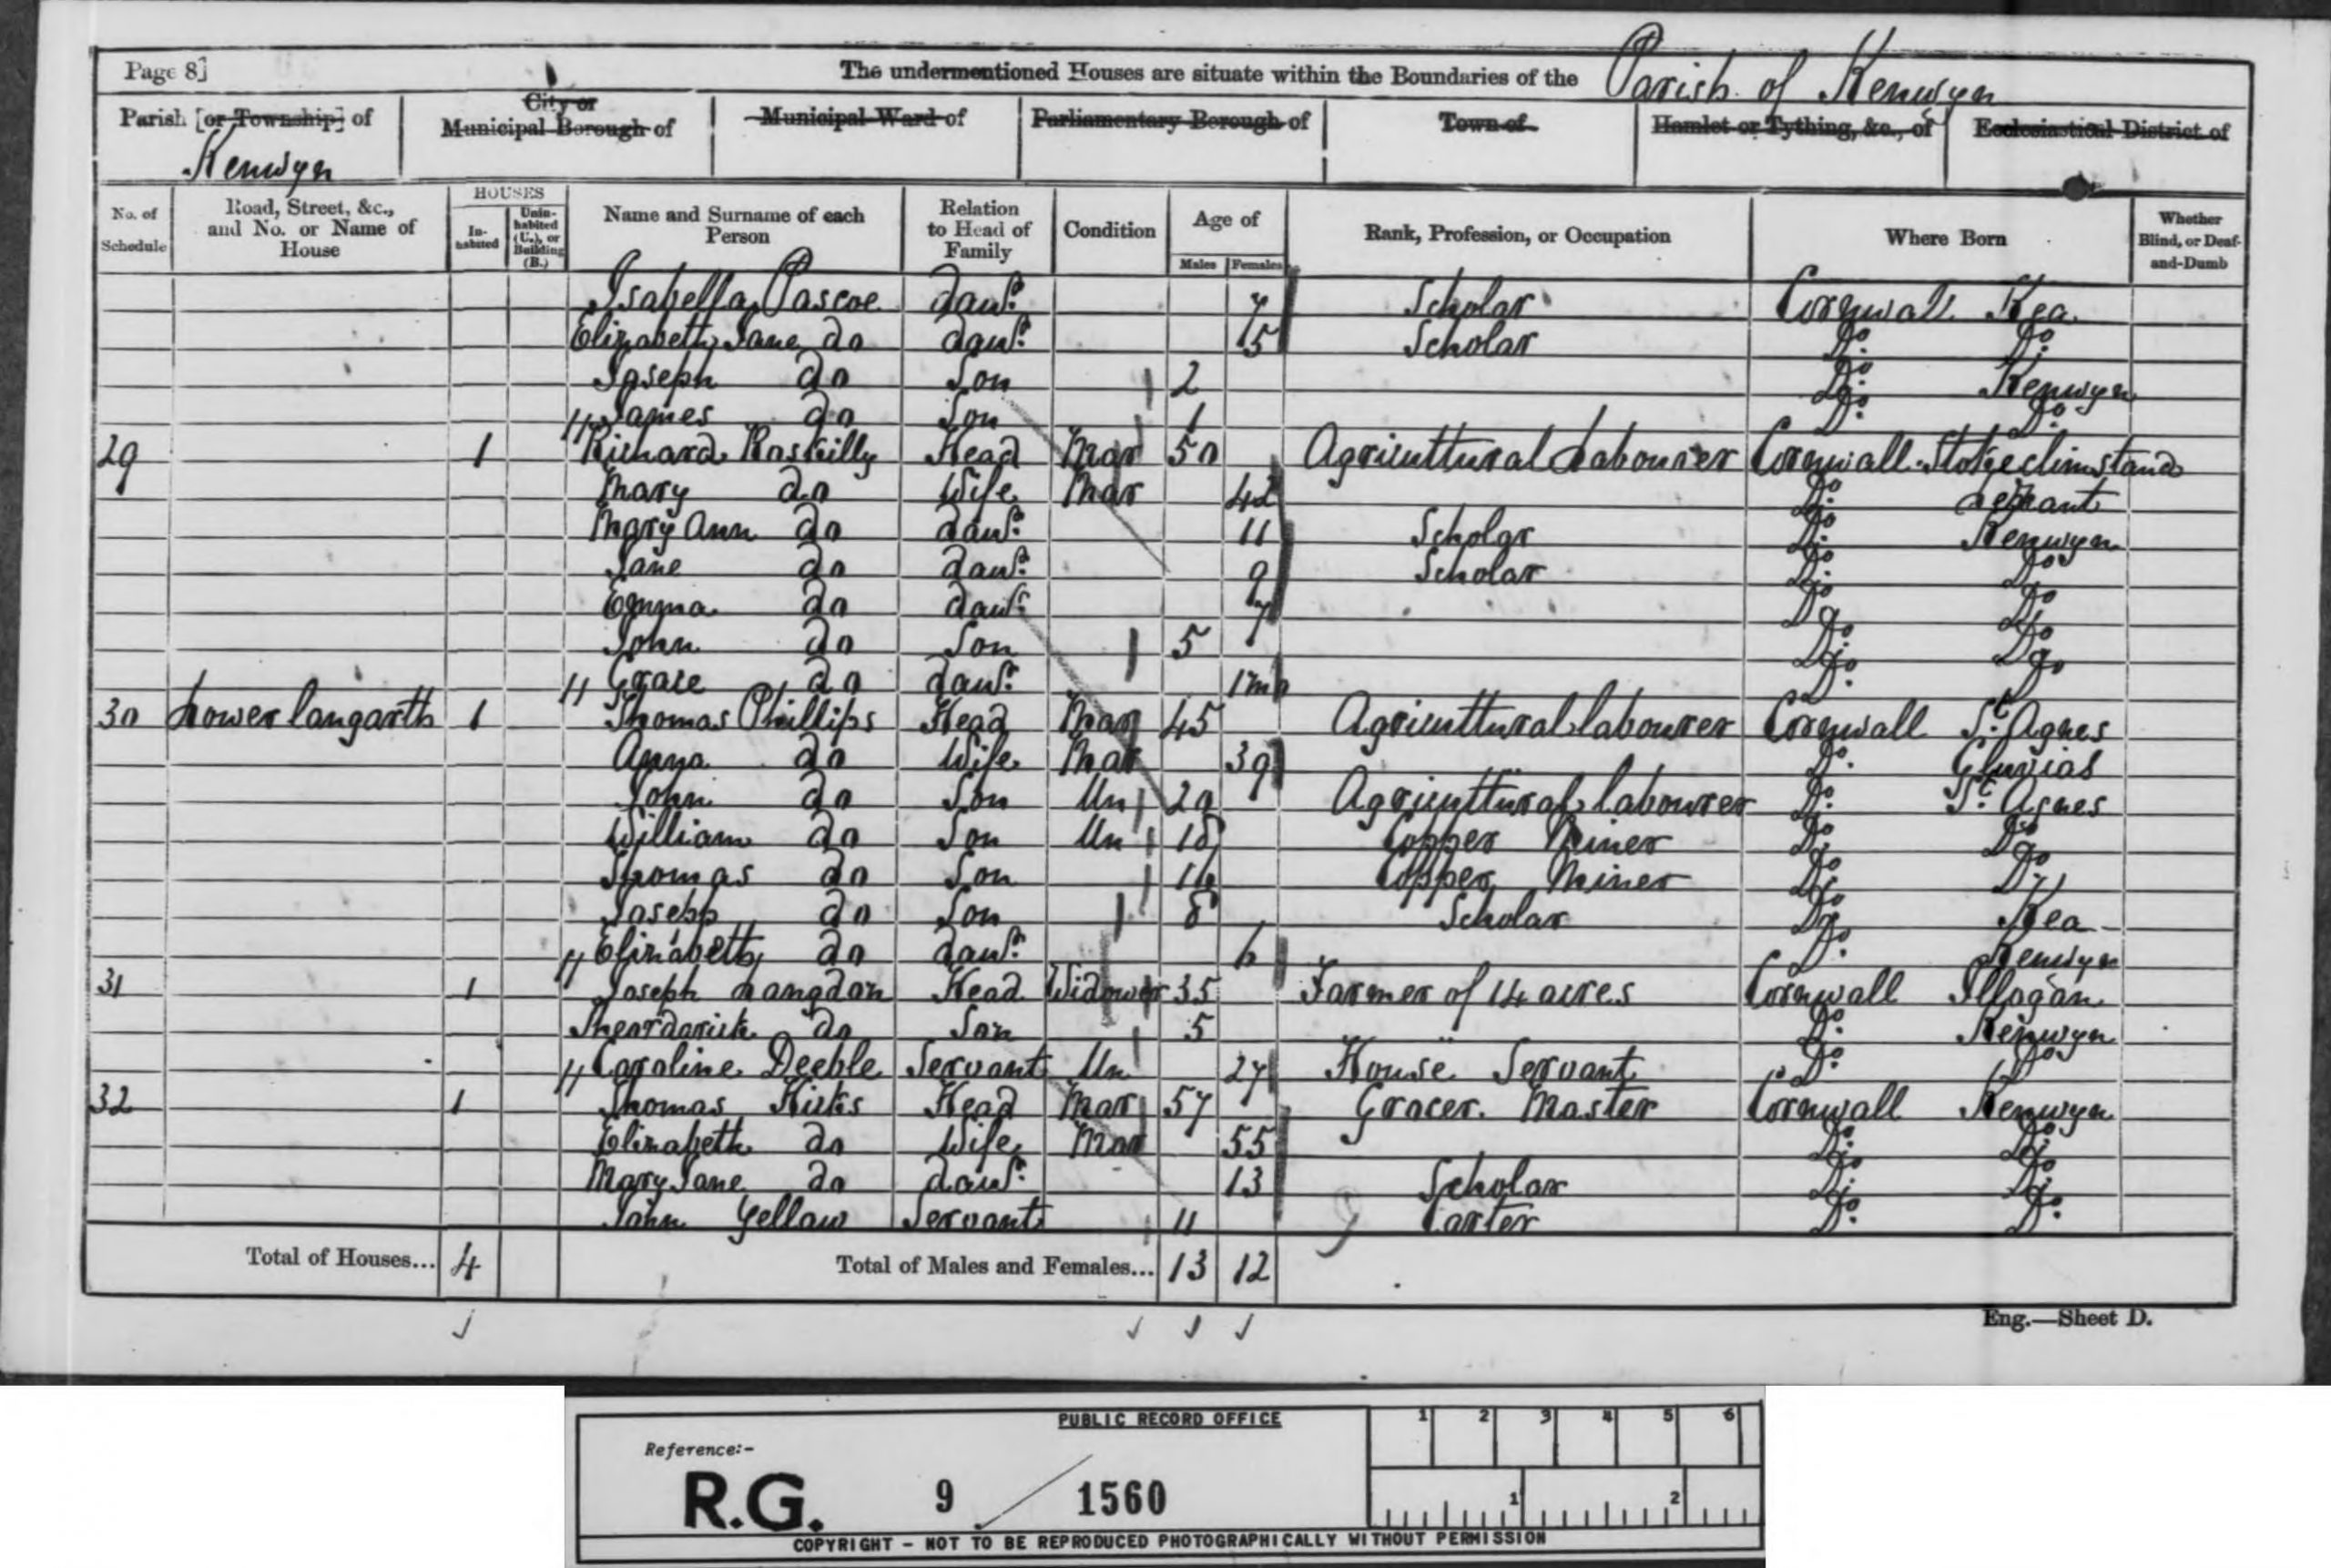 Page 8]
The undermentioned Houses are situate within the Boundaries of the Parish of Kenwyn
Parish [or Township] of Kenwyn
City or Municipal Borough of
Municipal Ward of
Parliamentary Borough of
Town of
Hamlet or Tything, &c., of
Ecclesiastical District of
No. of Schedule
Road, Street, &c., and No. or Name of House
HOUSES
In-habited
Unin-habited (U.), or Building (B.)
Name and Surname of each Person
Relation to Head of Family
Condition
Age of
Males
Females
Rank, Profession, or Occupation
Where Born
Whether Blind, or Deaf-and-Dumb
Isabella Pascoe daur. 7 Scholar Cornwall Kea
Elizabeth Jane do daur. 5 Scholar Do. Do.
Joseph do Son 2 Do. Kenwyn
James do Son 1 Do. Do.
29 1 Richard Roskilly Head Mar 50 Agricultural Labourer Cornwall Stokeclimsland
Mary do Wife Mar 42 Do.
Mary Ann do daur. 11 Scholar Do. Kenwyn
Jane do daur. 9 Scholar Do. Do.
Emma do daur. 7 Do. Do.
John do Son 5 Do. Do.
Grace do daur. 1m Do. Do.
30 Lower langarth 1 Thomas Phillips Head Mar 45 Agricultural labourer Cornwall St. Agnes
Anna do Wife Mar 39 Do. Gluvias
John do Son Un 20 Agricultural labourer Do. St. Agnes
William do Son Un 18 Copper Miner Do. Do.
Thomas do Son Copper Miner Do. Do.
Joseph do Son 8 Scholar Do. Kea
Elizabeth do daur. Do. Kenwyn
31 1 Joseph Langdon Head Widower 35 Farmer of 14 acres Cornwall Illogan
do Son 5 Do. Kenwyn
Caroline Deeble Servant Un 27 House Servant Do. Do.
32 1 Thomas Hicks Head Mar 57 Grocer. Master Cornwall Kenwyn
Elizabeth do Wife Mar 55 Do. Do.
Mary Jane do daur. 13 Scholar Do. Do.
John Yellow Servant 11 Carter Do. Do.
Total of Houses... 4
Total of Males and Females... 13 12
Eng.—Sheet D.
PUBLIC RECORD OFFICE
1 2 3 4 5 6
Reference:-
R.G. 9 / 1560
1 2
COPYRIGHT - NOT TO BE REPRODUCED PHOTOGRAPHICALLY WITHOUT PERMISSION